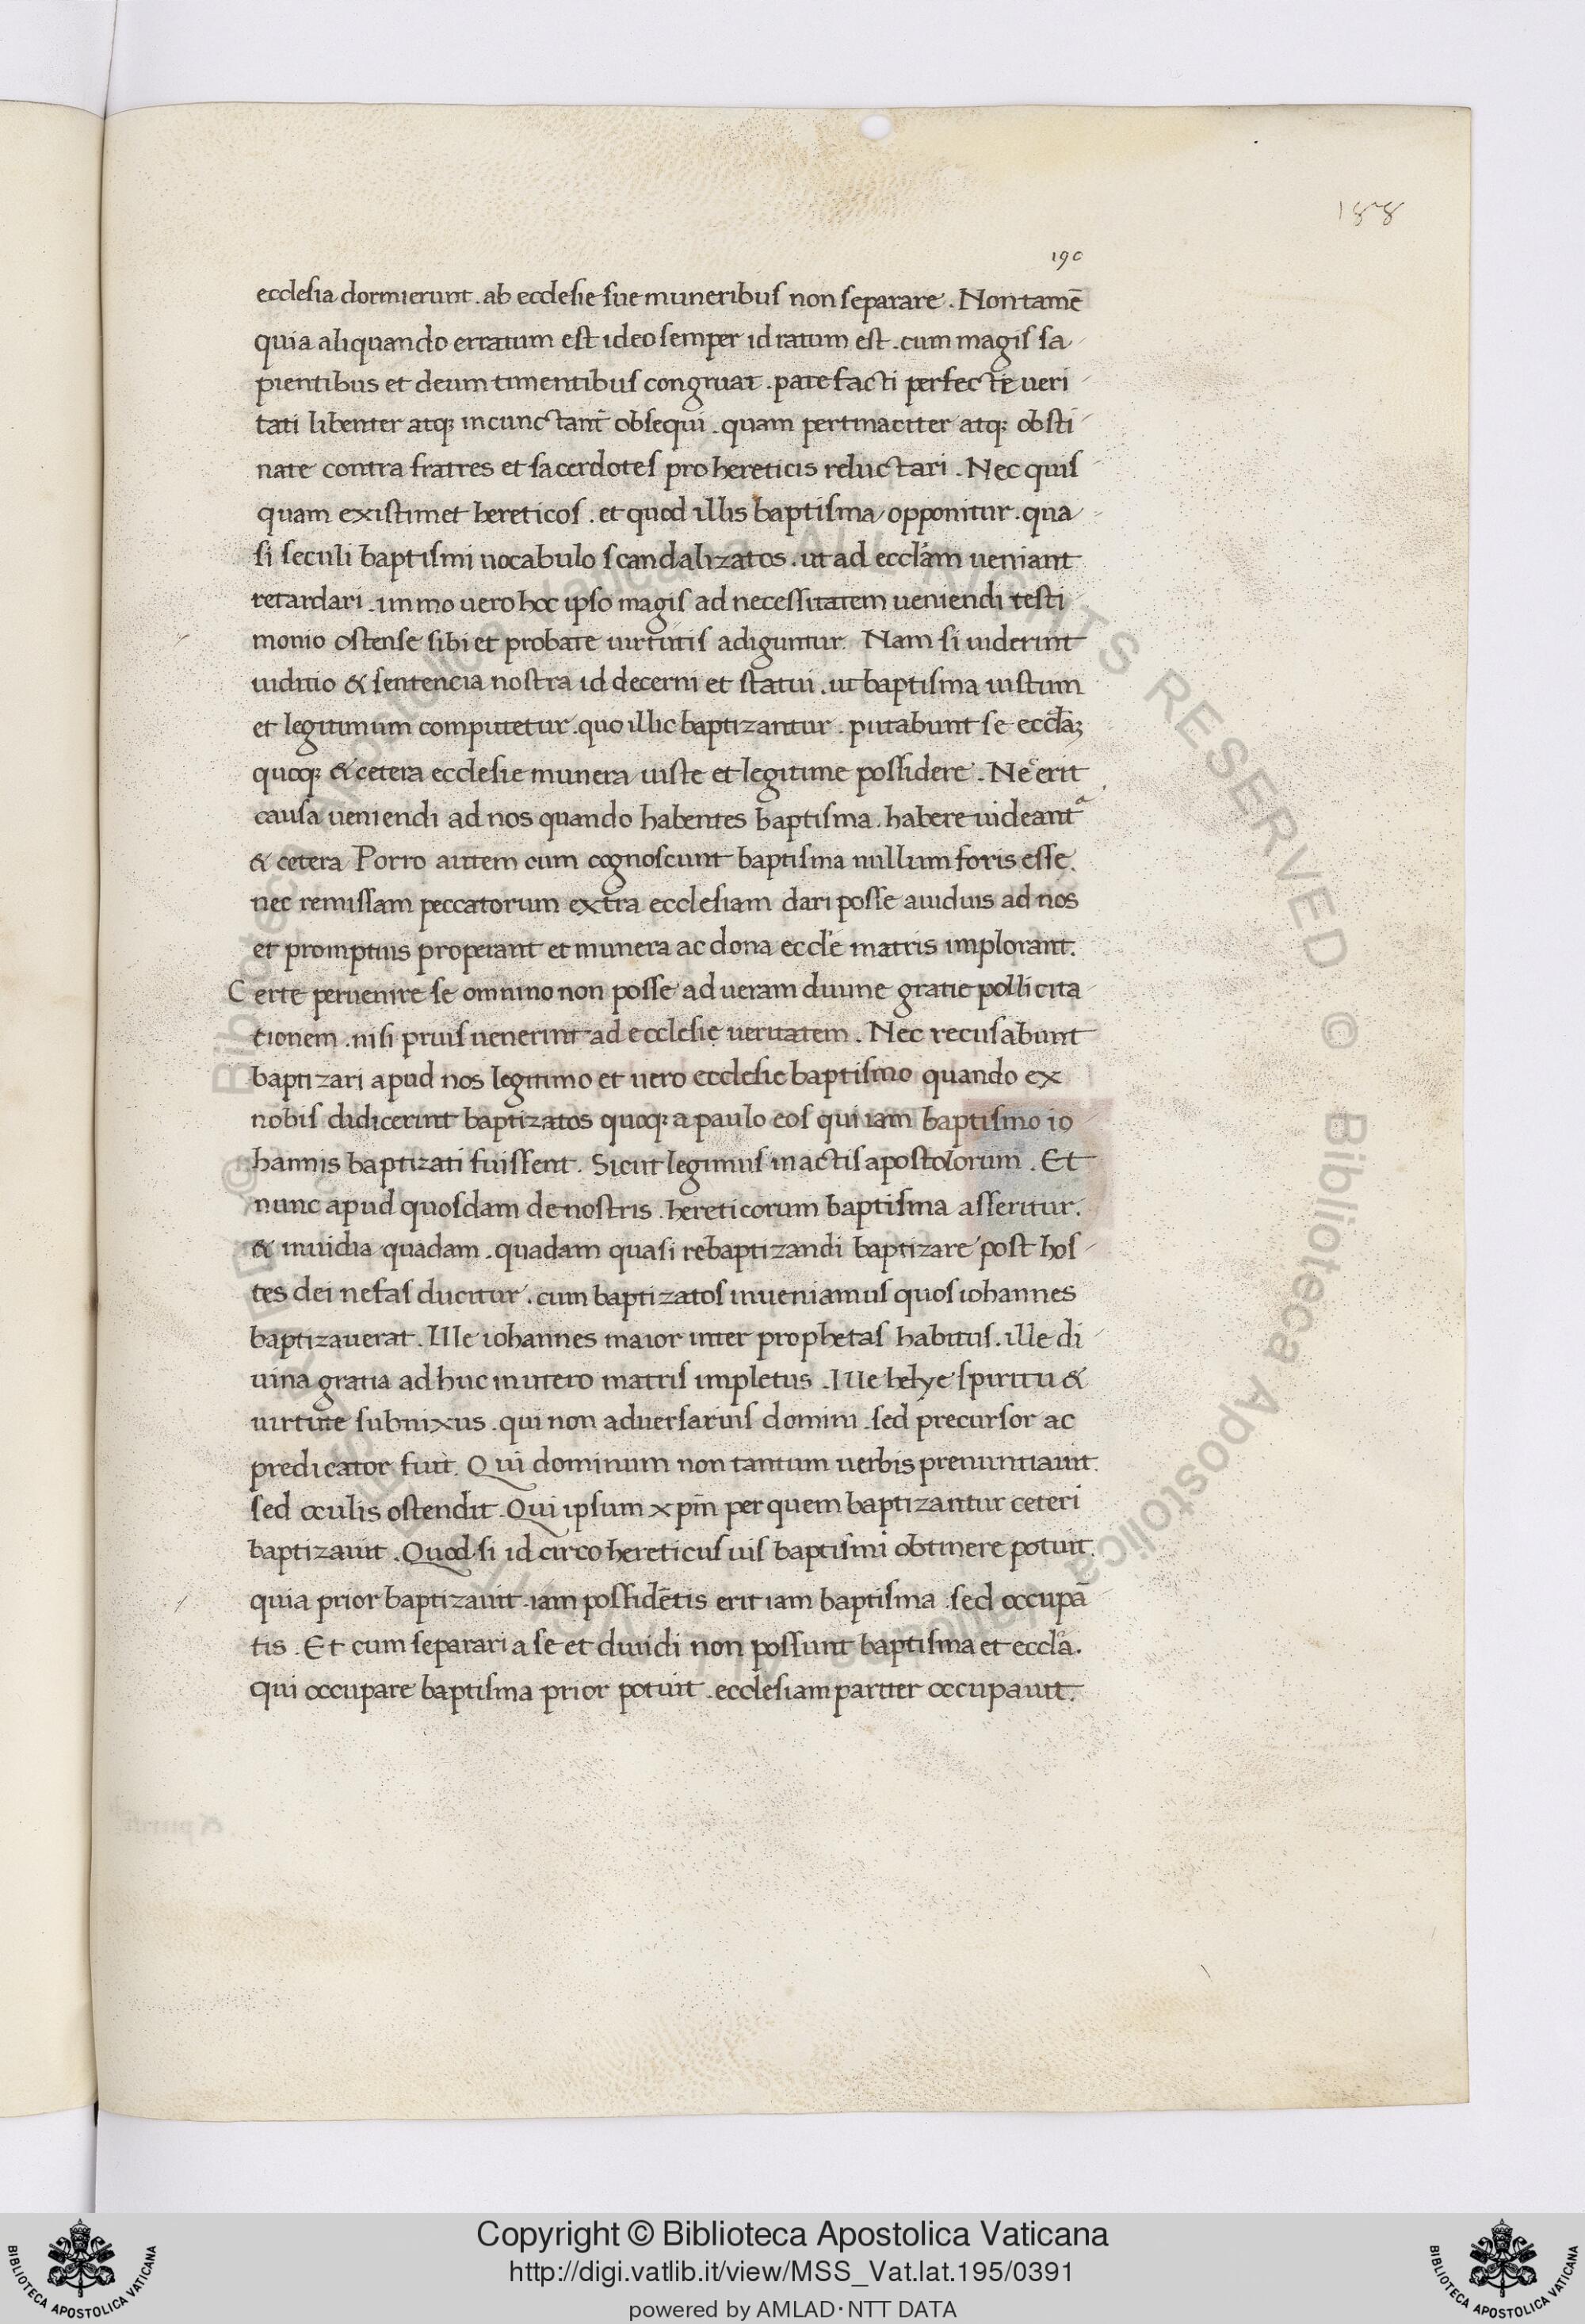 188
190
ecclesia dormierunt . ab ecclesie sue muneribus non separare . Non tamē
quia aliquando erratum est ideo semper id ratum est . cum magis sa
pientibus et deum timentibus congruat . patefacti perfecte ueri
tati libenter atq; incunctant̄ obsequi . quam pertinaciter atq; obsti
nate contra fratres et sacerdotes pro hereticis reluctari . Nec quis
quam existimet hereticos . et quod illis baptisma opponitur . qua
si seculi baptismi uocabulo scandalizatos . ut ad eccl̄am ueniant
retardari . immo uero hoc ipso magis ad necessitatem ueniendi testi
monio ostense sibi et probate uirtutis adiguntur. Nam si uiderint
iuditio & sentencia nostra id decerni et statui . ut baptisma iustum
et legitimum computetur . quo illic baptizantur . putabunt se eccl̄a;
quoq; & cetera ecclesie munera iuste et legitime possidere . Nec erit
causa ueniendi ad nos quando habentes baptisma . habere uideant᷑
& cetera Porro autem cum cognoscunt baptisma nullum foris esse.
nec remissam peccatorum extra ecclesiam dari posse auidius ad nos
et promptius properant et munera ac dona eccl̄e matris implorant.
Certe peruenire se omnino non posse ad ueram diuine gratie pollicita
tionem . nisi prius uenerint ad ecclesię ueritatem . Nec recusabunt
baptizari apud nos legitimo et uero ecclesie baptismo quando ex
nobis didicerint baptizatos quoq; a paulo eos qui iam baptismo io
hannis baptizati fuissent . Sicut legimus in actis apostolorum . Et
nunc apud quosdam de nostris . hereticorum baptisma asseritur.
& inuidia quadam . quadam quasi rebaptizandi baptizare post hos
tes dei nefas ducitur . cum baptizatos inueniamus quos iohannes
baptizauerat . Ille iohannes maior inter prophetas habitus . ille di
uina gratia ad huc in utero matris impletus . Ille helye spiritu &
uirtute subnixus . qui non aduersarius domini . sed precursor ac
predicator fuit . Qui dominum non tantum uerbis prenuntiauit.
sed oculis ostendit . Qui ipsum xpm̄ per quem baptizantur ceteri
baptizauit . Quod si id circo hereticus uis baptismi obtinere potuit.
quia prior baptizauit . iam possidētis erit iam baptisma . sed occupā
tis . Et cum separari a se et diuidi non possunt baptisma et eccl̄a.
qui occupare baptisma prior potuit . ecclesiam pariter occupauit.
Copyright © Biblioteca Apostolica Vaticana
http://digi.vatlib.it/view/MSS_Vat.lat.195/0391
powered by AMLAD·NTT DATA